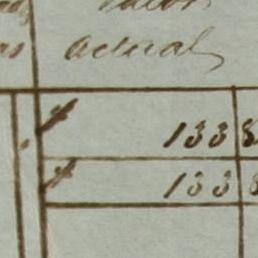 Valor
actual
$ 1338
$ 1338